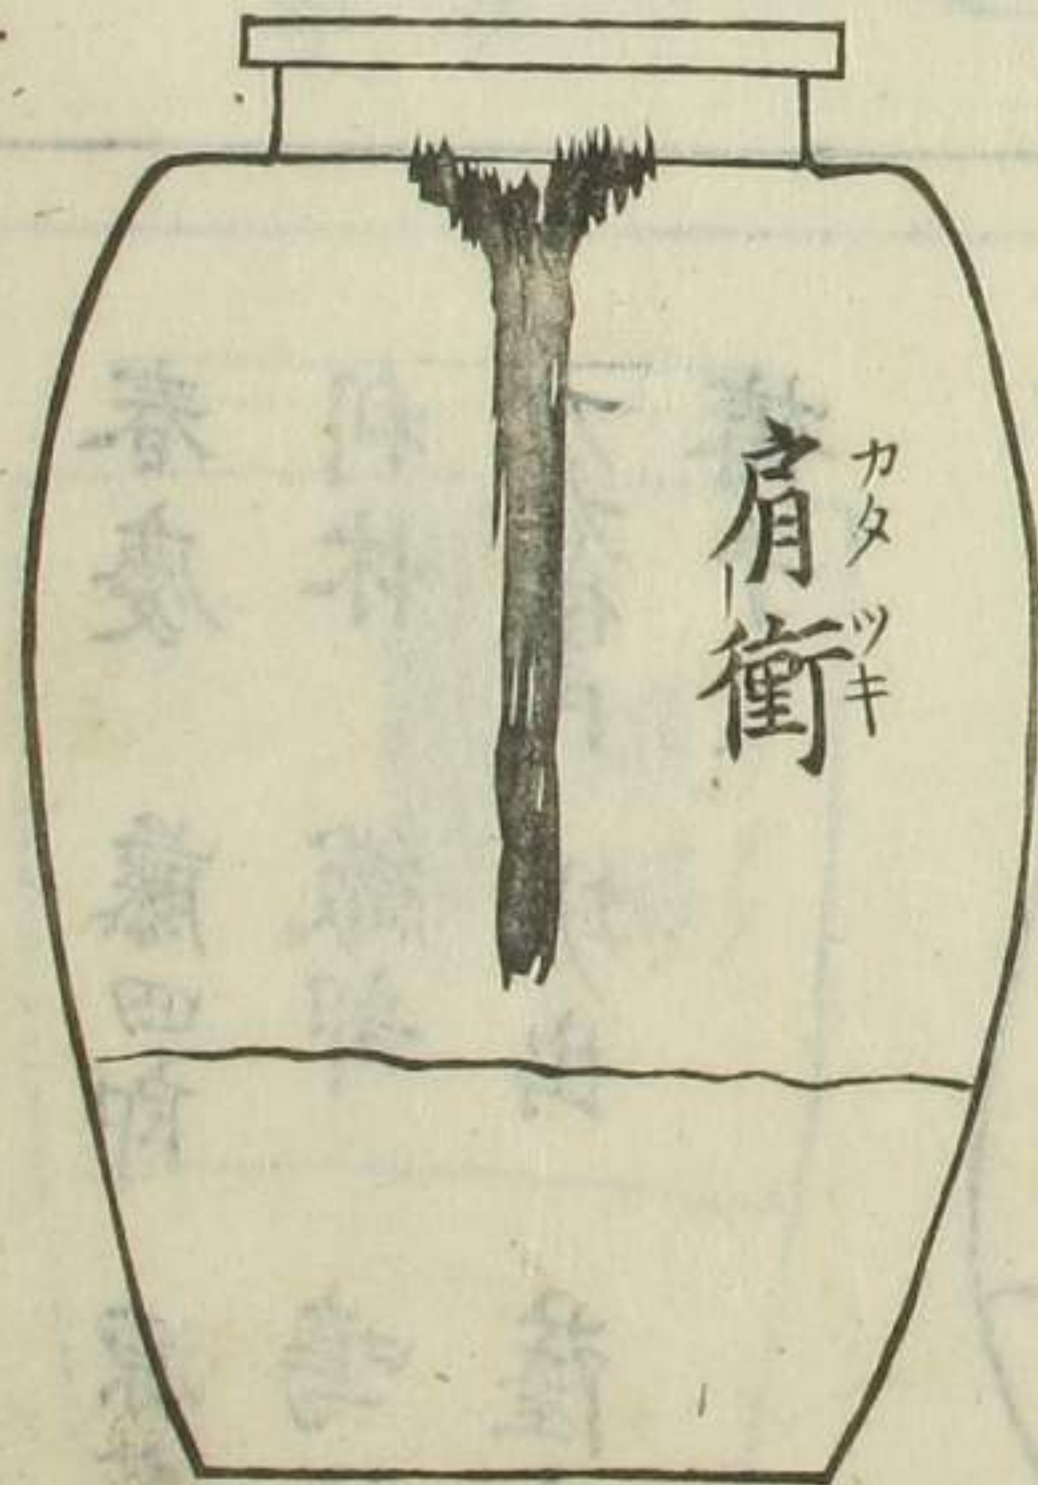 肩衝
カタツキ